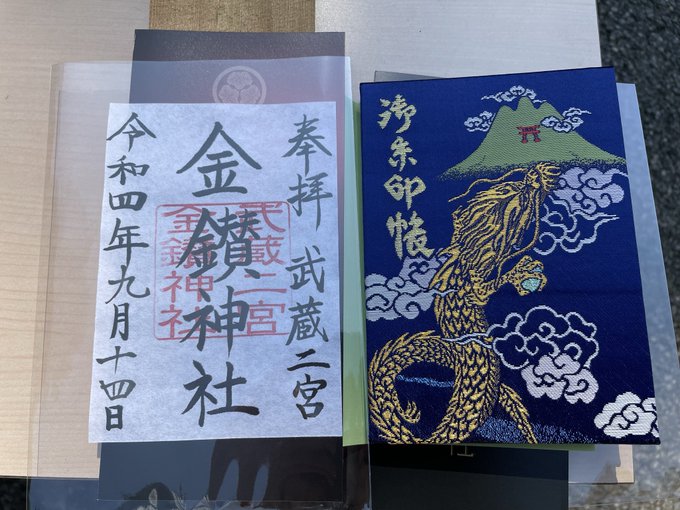 奉拝 武蔵二宮
金鑚神社
武蔵二宮
金鑚神社
令和四年九月十四日
御朱印帳